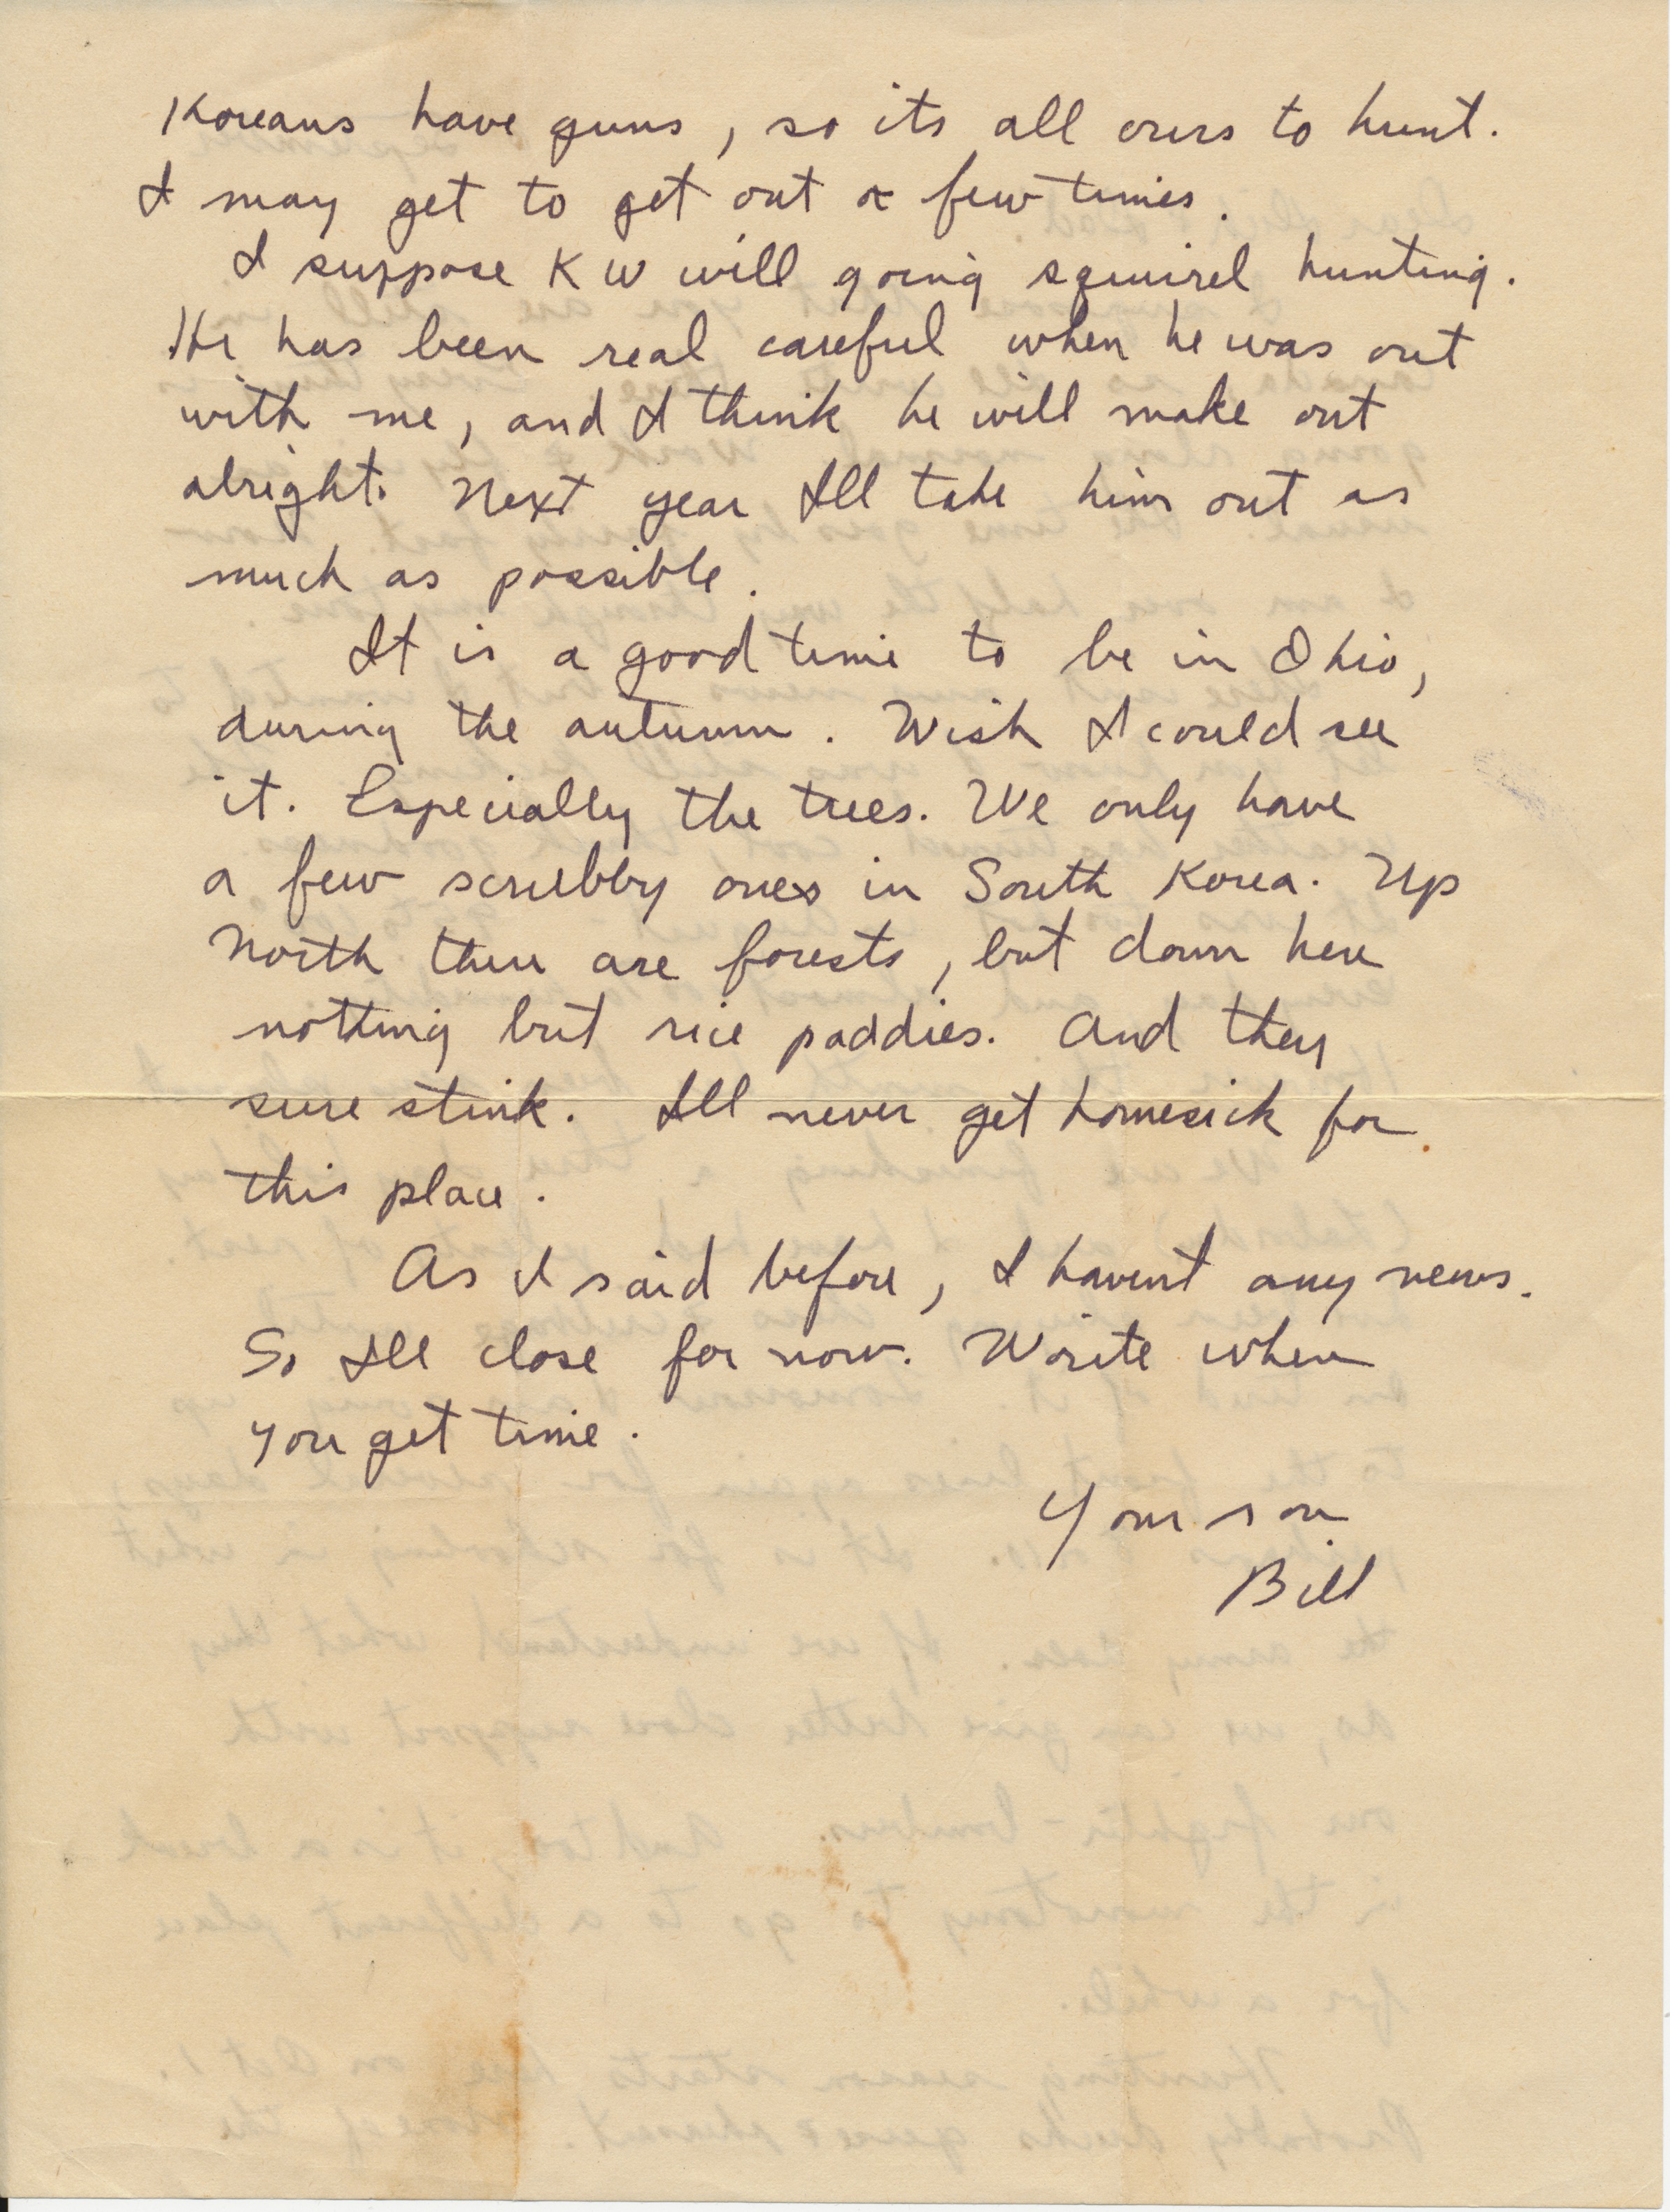 Koreans have guns, so its all ours to hunt.
I may get to get out a few times.
I suppose KW will going squirel hunting.
He has been real careful when he was out
with me, and I think he will make out
alright. Next year Ill take him out as
much as possible.
It is a good time to be in Ohio,
during the autumn. Wish I could see
it. Especially the trees. We only have
a few scrubby ones in South Korea. Up
North there are forests, but down here
nothing but rice paddies. And they
sure stink. Ill never get homesick for
this place.
As I said before, I havent any news.
So Ill close for now. Write when
you get time.
Your son
Bill